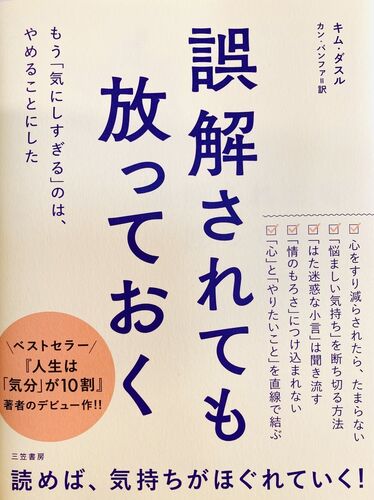 キム・ダスル
カン・バンファ=訳
誤解されても
放っておく
もう「気にしすぎる」のは、
やめることにした
心をすり減らされたら、たまらない
「悩ましい気持ち」を断ち切る方法
「はた迷惑な小言」は聞き流す
「情のもろさ」につけ込まれない
「心」と「やりたいこと」を直線で結ぶ
ベストセラー
『人生は
「気分」が10割』
著者のデビュー作!!
三笠書房
読めば、気持ちがほぐれていく!